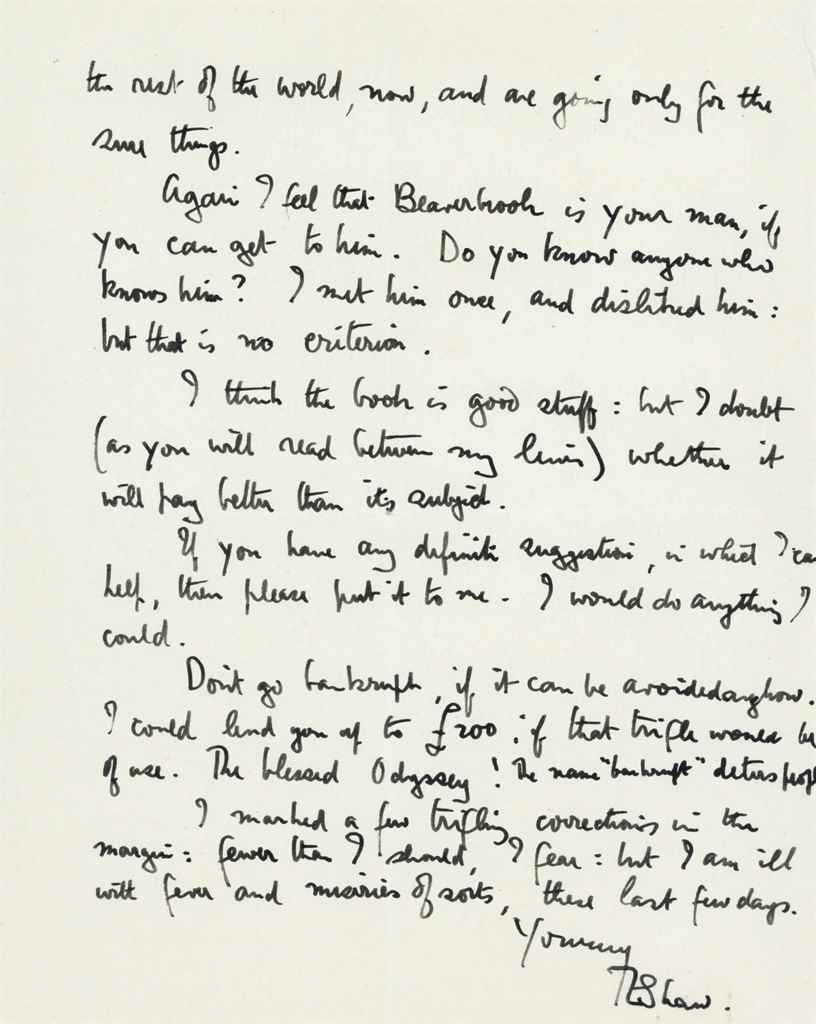 the rest of the world, now, and are going only for the
sure things.
Again I feel that Beaverbrook is your man, if
you can get to him. Do you know anyone who
knows him? I met him once, and disliked him:
but that is no criterion.
I think the book is good stuff: but I doubt
(as you will read between my lines) whether it
will pay better than its subject.
If you have any definite suggestion, in which I can
help, then please put it to me. I would do anything I
could.
Don't go bankrupt, if it can be avoided anyhow.
I could lend you up to £200, if that trifle would be
of use. The blessed Odyssey! The name "bankrupt" deters people
I marked a few trifling corrections in the
margin: fewer than I should, I fear: but I am ill
with fever and miseries of sorts, these last few days.
Yours
TEShaw.